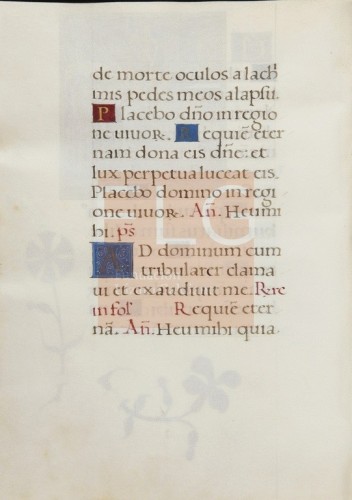 de morte oculos a lacri
mis pedes meos a lapsu.
Placebo dño in regio
ne uiuoR. Requiē eter
nam dona eis dñe: et
lux perpetua luceat eis.
Placebo domino in regi
one uiuoR. Añ. Heu mi
hi. ps
AD dominum cum
tribularer clama
ui et exaudiuit me. Re re
in fol R equiē eter
nā. Añ. Heu mihi quia.
FLC